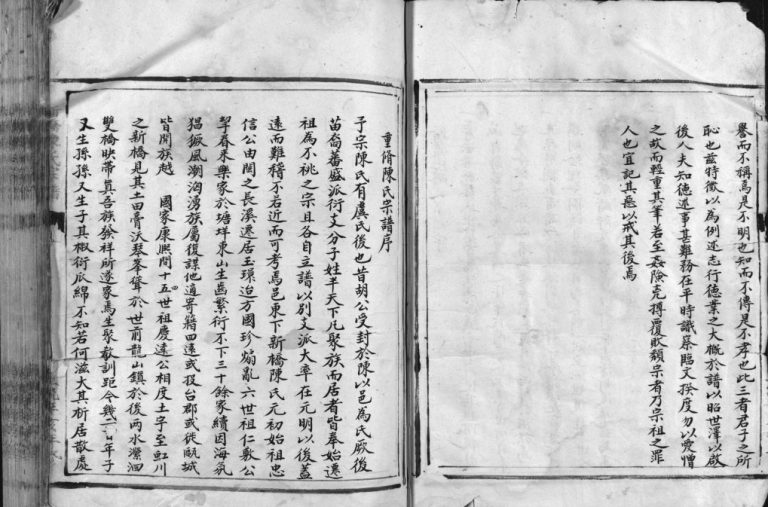 譽而不稱焉是不明也知而不傳是不孝也此三者君子之所
恥也茲特徵以為例述志行德業之大概於譜以昭世澤以啟
後人夫知德述事甚難務在平時識慕臨文揆度勿以愛憎
之故而輕重其筆若至姦險克摶覆敗纇宗者乃宗祖之罪
人也宜記其惡以戒其後焉
重脩陳氏宗譜序
于宗陳氏有虞氏後也昔胡公受封於陳以邑為氏厥後
苗裔蕃盛派衍支分子姓半天下凡聚族而居者皆奉始遷
祖為不祧之宗且各自立譜以別支派大率在元明以後蓋
遠而難稽不若近而可考焉邑東下新橋陳氏元初始祖忠
信公由閩之長溪遷居玉環迨方國珍煽亂六世祖仁敷公
挈眷來樂家於塘垟東山生齒繁衍不下三十餘家續因海氛
猖獗風潮洶湧族屬復謀他適寄籍四遠或投台郡或徙甌城
皆閒族越　國家康熙間十五世祖慶遠公相度土宇至虹川
之新橋見其土田膏沃琴峯聳於世前龍山鎮於後兩水瀠洄
雙橋映帶真吾族發祥所遂家焉生聚教訓距今幾二百年子
又生孫孫又生子其椒衍瓜綿不知若何滋大其析居散處